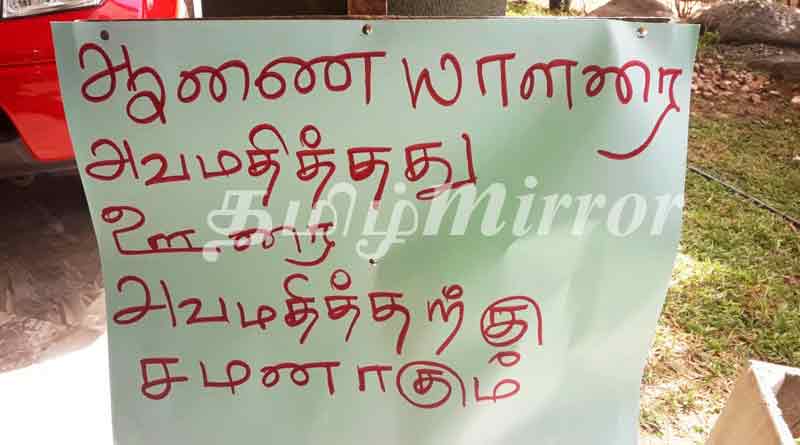 ஆணை யாளரை
அவமதித்தது
ஊரை
தமிழ்mirror
அவமதித்தற்கு
சமனாகும்